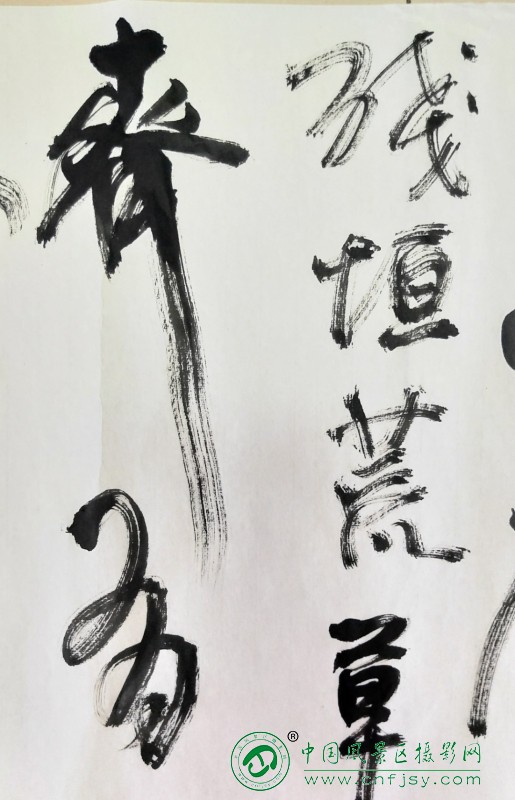 残垣荒草
春
®
中国风景区摄影网
www.cnfjsy.com